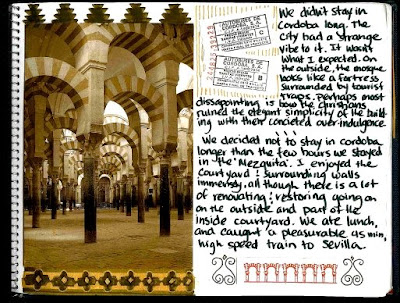 We didn't stay in
Cordoba long. The
City had a strange
vibe to it. It wasn't
what I expected. On
the outside, the mosque
looks like a fortress
surrounded by tourist
traps. Perhaps most
dissapointing is how the christians
ruined the elegant simplicity of the build-
ing with their concieted over-indulgence.
We decided not to stay in cordoba
longer than the few hours we stayed
in the Mezquita. I enjoyed the
courtyard & surrounding walls
immensly, all though there is a lot
of renovating & restoring going on
on the outside and part of the
inside courtyard. We ate lunch,
and caught a pleasurable 45 min,
high speed train to Sevilla.
AUTOBUSES DE
CORDOBA
C
AUTOBUSES DE
CORDOBA
B